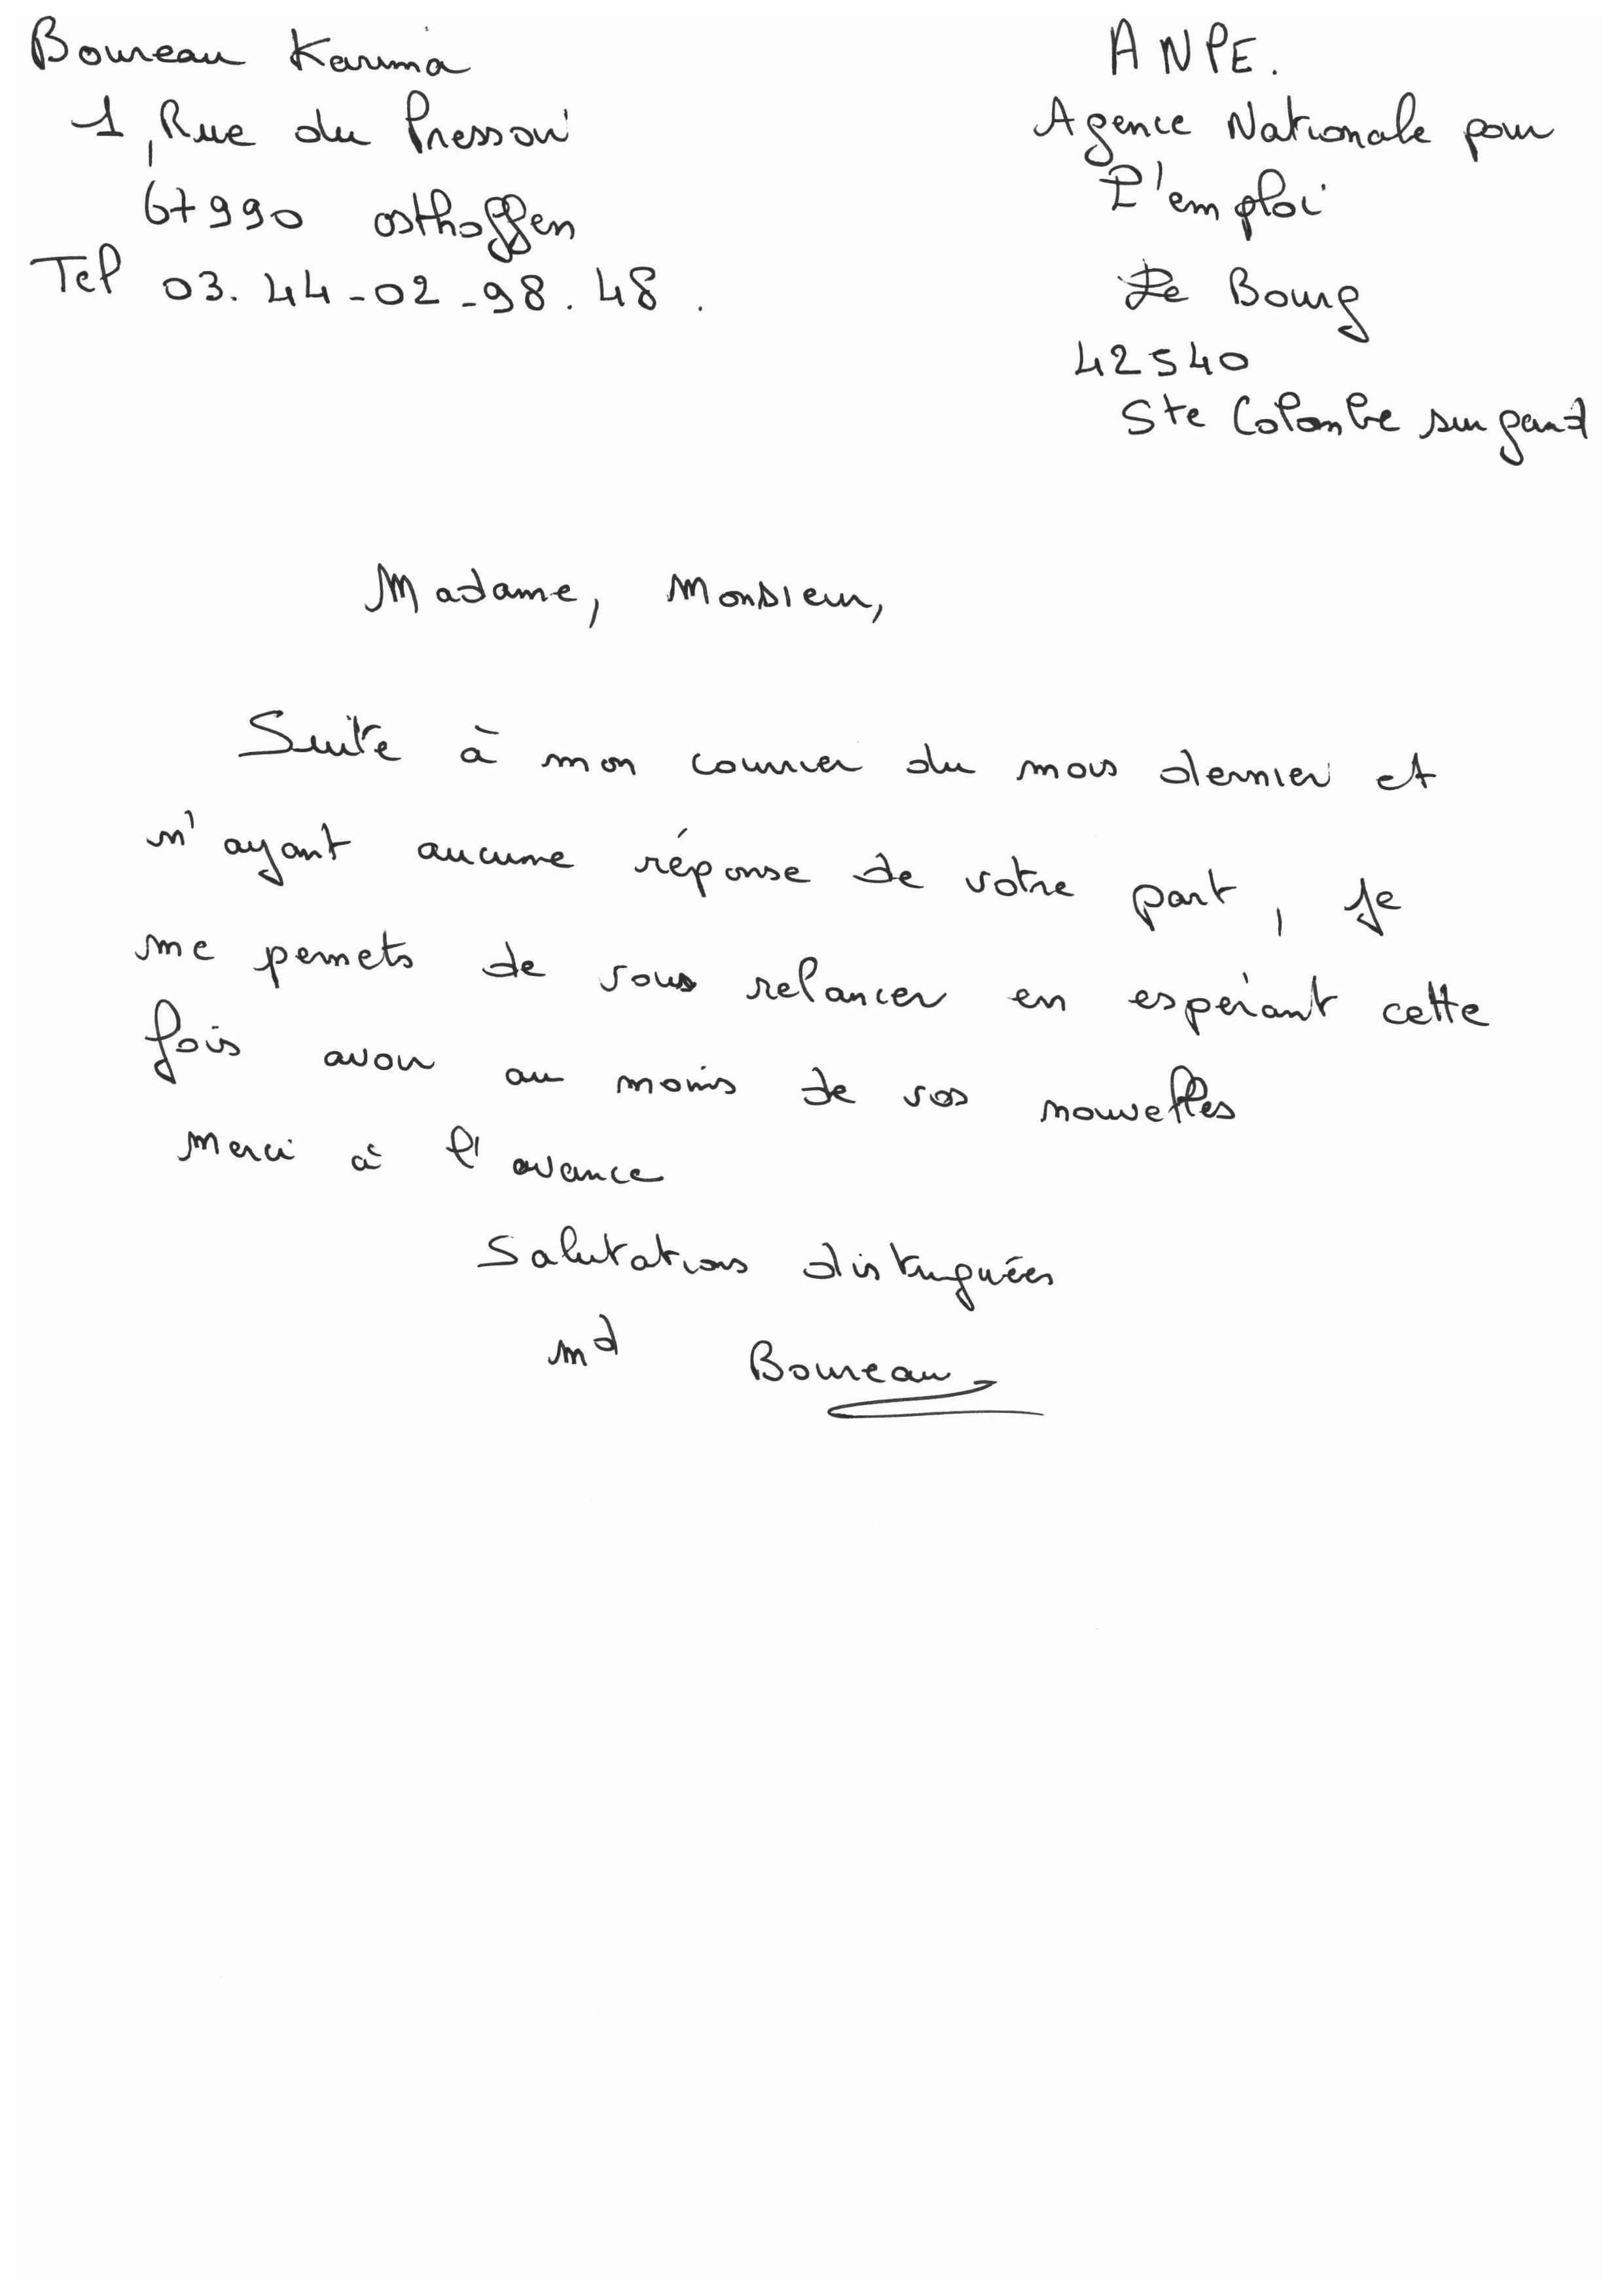 Boureau Karima
1, Rue du Pressoir
67990 osthoffen
Tel 03.44-02-98.48.
ANPE.
Agence Nationale pour
L'emploi
Le Bourg
42540
Ste Colombe sur gand
Madame, Monsieur,
Suite à mon courrier du mois dernier et
n'ayant aucune réponse de votre part, je
me permets de vous relancer en espérant cette
fois avoir au moins de vos nouvelles
Merci à l'avance
Salutations distinguées
Md Boureau